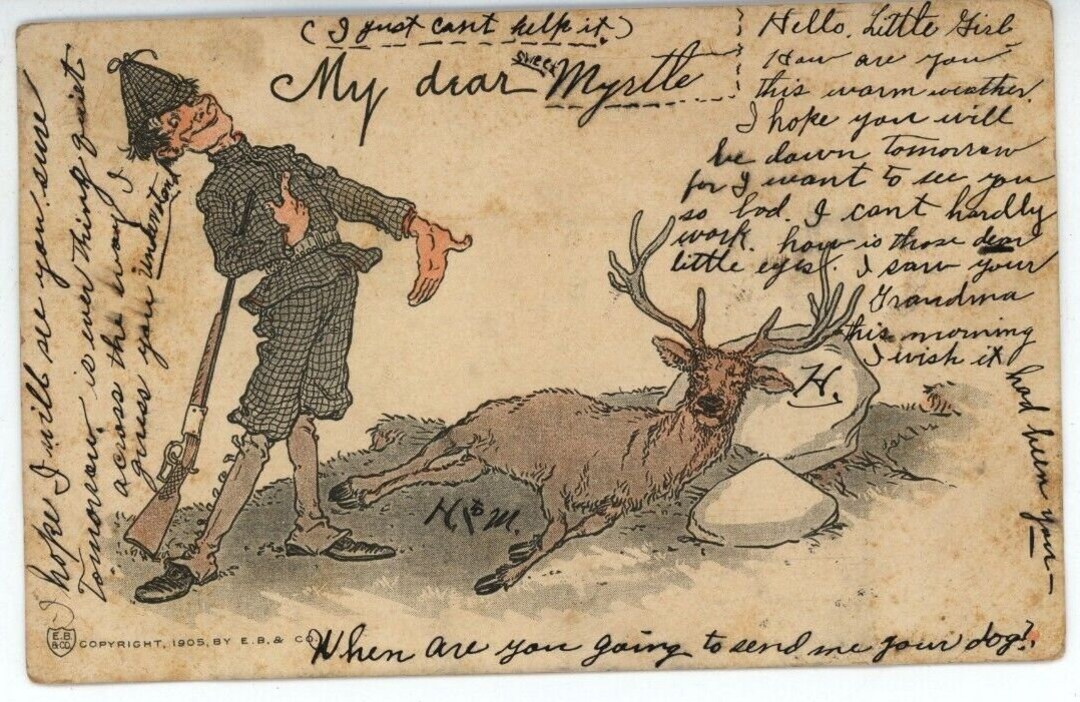 ( I just cant help it. )
My dear sweet Myrtle
Hello, Little Girl
How are you
this warm weather.
I hope you will
be down tomorrow
for I want to see you
so bad. I cant hardly
work. how is those dear
little eyes. I saw your
Grandma
this morning
I wish it
had been you—
H.
H & M.
I hope I will see you sure
Tomorrow is every thing quiet
across the way I
guess you understand
When are you going to send me your dog?
E.B. & CO.
COPYRIGHT, 1905, BY E.B. & CO.